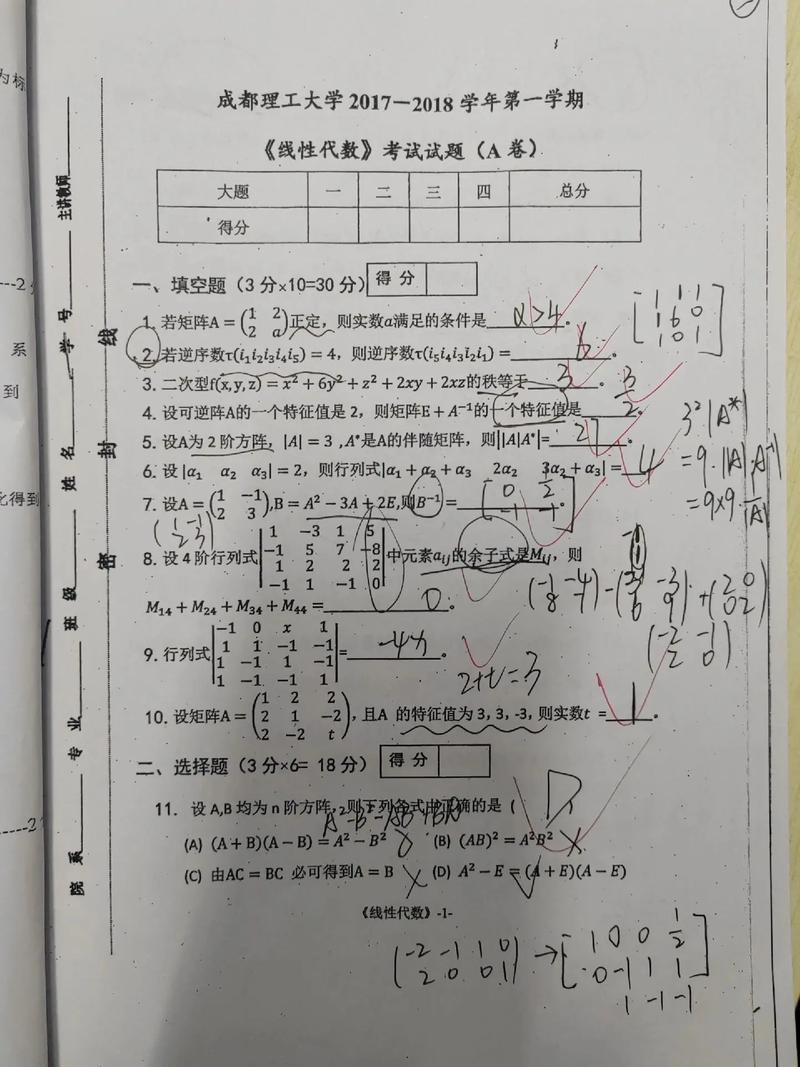 成都理工大学 2017—2018 学年第一学期
《线性代数》考试试题（A 卷）
大题 一 二 三 四 总分
得分
一、填空题（3 分×10=30 分） 得 分
1. 若矩阵A = (1 2; 2 a)正定，则实数a满足的条件是 a>4 。
2. 若逆序数τ(i₁i₂i₃i₄i₅) = 4，则逆序数τ(i₅i₄i₃i₂i₁) = 6 。
3. 二次型f(x,y,z) = x² + 6y² + z² + 2xy + 2xz的秩等于 3 。
4. 设可逆阵A的一个特征值是 2，则矩阵E + A⁻¹的一个特征值是 3/2 。
5. 设A为 2 阶方阵，|A| = 3 ,A*是A的伴随矩阵，则||A|A*|= 27 。
6. 设 |α₁ α₂ α₃| = 2，则行列式|α₁ + α₂ + α₃ 2α₂ 3α₂ + α₃| = 4
7. 设A = (1 −1; 2 3),B = A² − 3A + 2E,则B⁻¹ = [0 1/2; −1 −1] 。
8. 设 4 阶行列式 |1 −3 1 5; −1 5 7 −8; 1 2 2 2; −1 1 −1 0| 中元素a_ij的余子式是M_ij，则
M₁₄ + M₂₄ + M₃₄ + M₄₄ = 0 。
9. 行列式 |−1 0 x 1; 1 1 −1 −1; 1 −1 1 −1; 1 −1 −1 1| = -4x 。
2+t=3
10. 设矩阵A = (1 2 2; 2 1 −2; 2 −2 t)，且A 的特征值为 3, 3, -3, 则实数t = 1 。
二、选择题（3 分×6= 18 分） 得 分
11. 设 A,B 均为 n 阶方阵，则下列各式中正确的是 ( D
(A) (A + B)(A − B) = A² − B² (B) (AB)² = A²B² ×
(C) 由AC = BC 必可得到A = B × (D) A² − E = (A + E)(A − E) √
《线性代数》-1-
(-2 -1 1 0; 2 0 0 1) → [1 0 0 1/2; 0 -1 1 1]
1 -1 -1
[1 1 1; 1 6 0; 1 0 1]
3²|A*|
=9·|A|·A⁻¹|
=9×9·1/|A|
(1 -1; 2 3)
(-2 -1; 2 0)
主讲教师
学 号
姓 名
班 级
专 业
院 系
线
封
密
为标
系
到
化得到